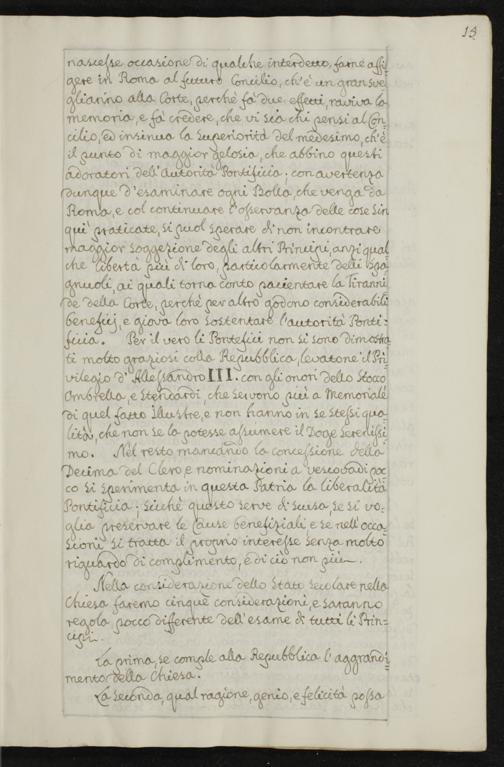 15
nascesse occasione di qualche interdetto, farne affi=
gere in Roma al futuro Concilio, ch'è un gran sve=
gliarino alla Corte, perchè fà due effetti, raviva la
memoria, e fà credere, che vi sia chi pensi al Con=
cilio, ed insinua la superiorità del medesimo, ch'è
il punto di maggior gelosia, che abbino questi
adoratori dell'autorità Pontificia; con avertenza
dunque d'esaminare ogni Bolla, che venga da
Roma, e col continuare l'osservanza delle cose sin
quì praticate, si può sperare di non incontrare
maggior soggezione degli altri Principi, anzi qual
che libertà più di loro, particolarmente delli Spa=
gnuoli, ai quali torna conto pacientare la Tiranni
de della Corte, perchè per altro godono considerabili
beneficij, e giova loro sostentare l'autorità Ponti=
ficia. Per il vero li Pontefici non si sono dimostra
ti molto graziosi colla Repubblica, levatone il Pri=
vilegio d'Allessandro III. con gli onori dello Stocco
Ombrella, e Stendardi, che servono più a Memoriale
di quel fatto Illustre, e non hanno in se stessi qua
lità, che non se la potesse assumere il Doge Serenissi
mo. Nel resto mancando la concessione della
Decima del Clero, e nominazioni a vescovadi poc
co si sperimenta in questa Patria la liberalità
Pontificia; sicchè questo serve di scusa, se si vo=
glia preservare le cause benefiziali e se nell'occa
sioni si tratta il proprio interesse senza molto
riguardo di complimento, e di ciò non più.
Nella considerazione dello Stato secolare nella
Chiesa faremo cinque considerazioni, e saranno
regola pocco differente dell'esame di tutti li Prin=
cipi.
La prima, se comple alla Repubblica l'aggrandi=
mento della Chiesa.
La seconda, qual ragione, genio, e felicità possa